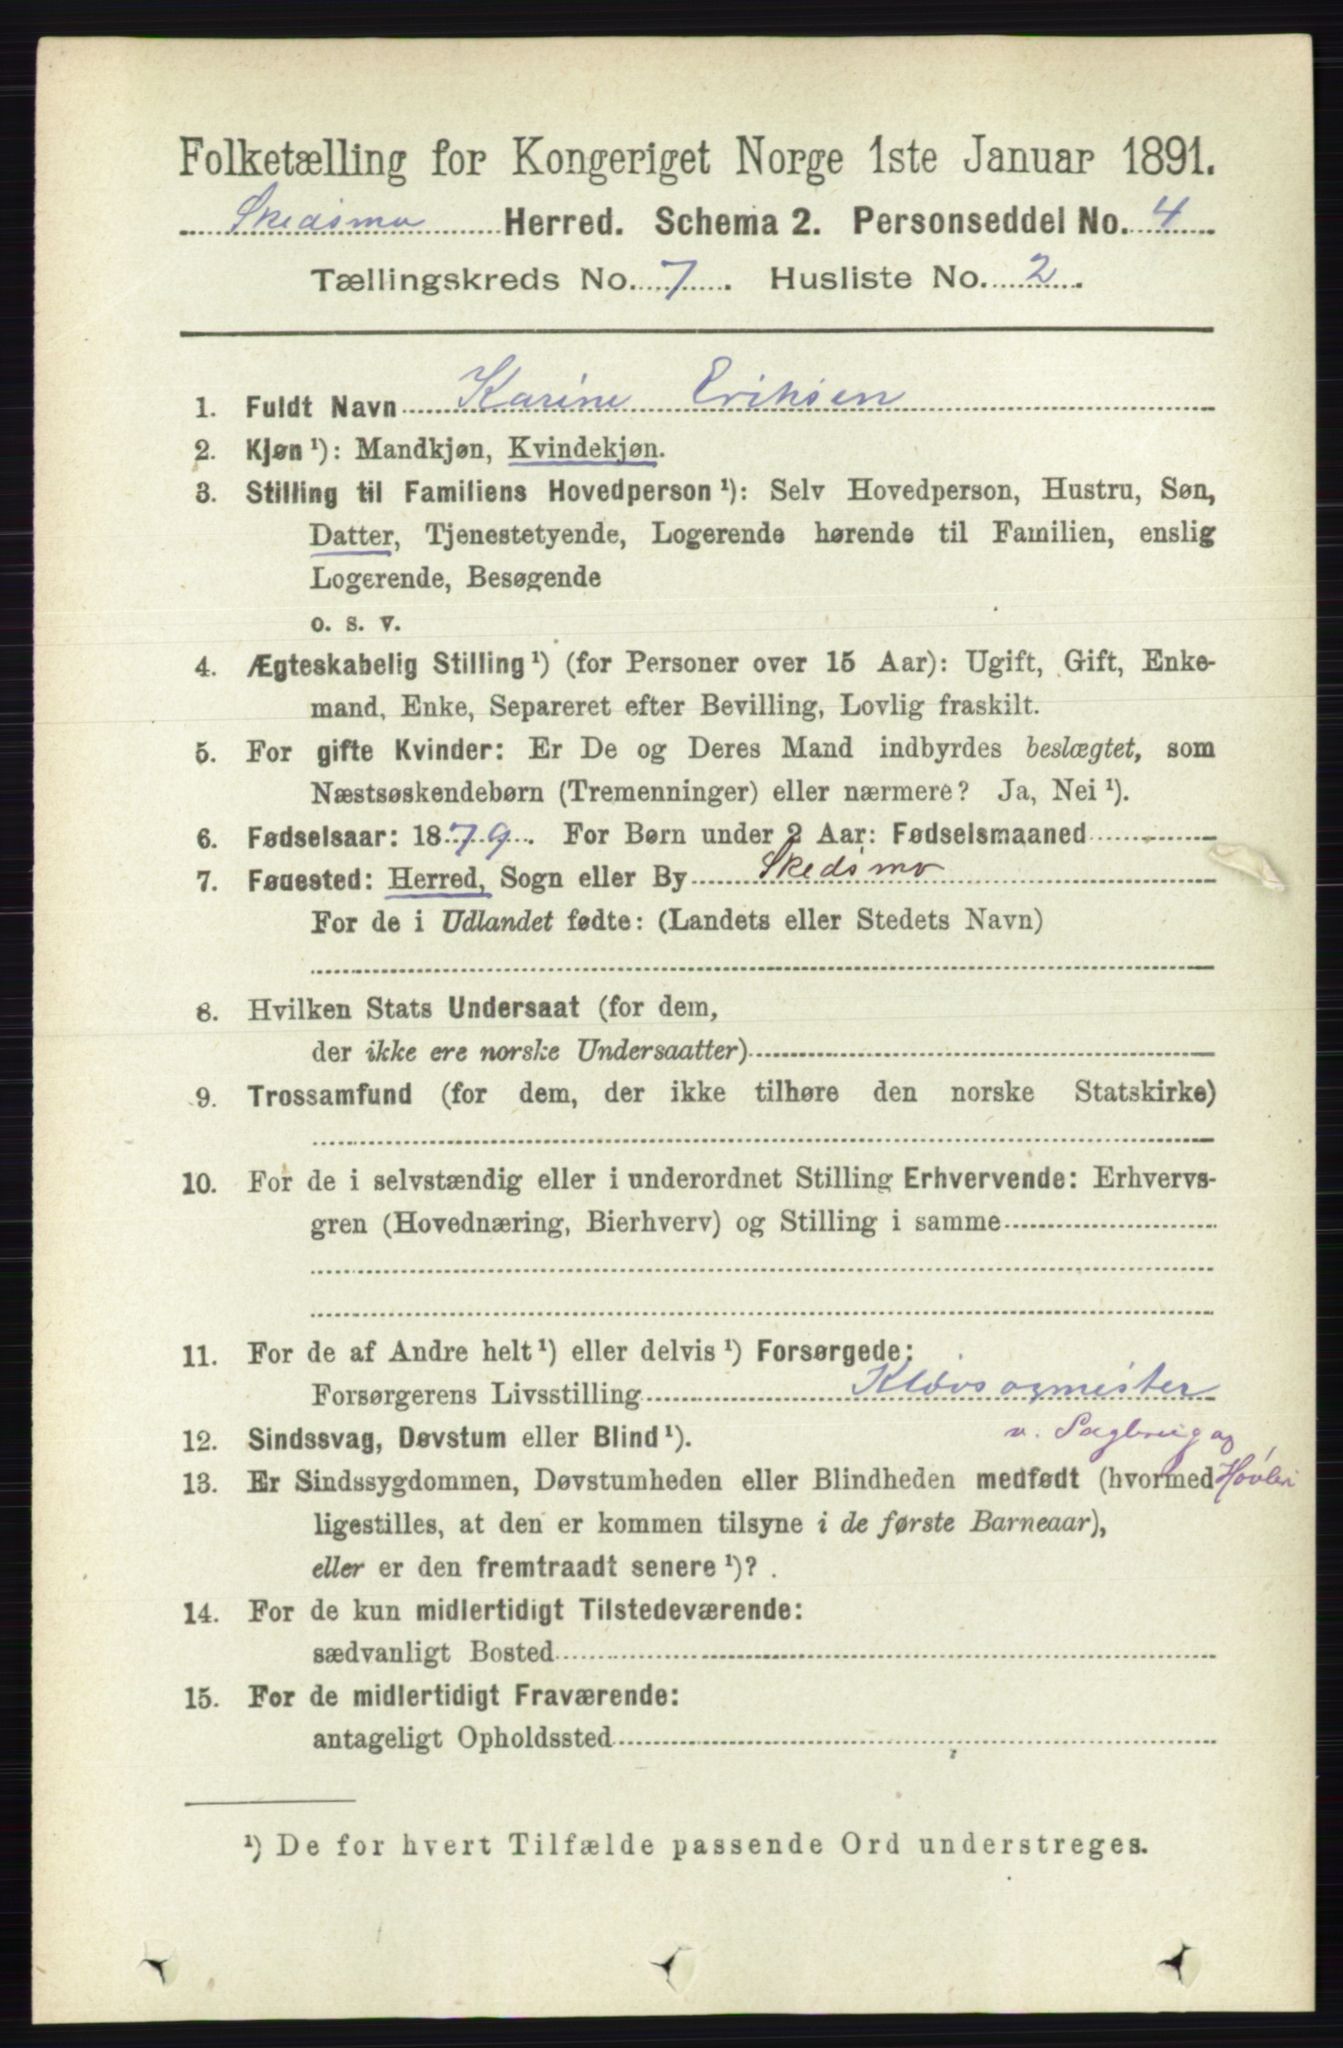 Folketælling for Kongeriget Norge 1ste Januar 1891.
Skedsmo Herred. Schema 2. Personseddel No. 4
Tællingskreds No. 7. Husliste No. 2.
1. Fuldt Navn Karine Eriksen
2. Kjøn¹): Mandkjøn, Kvindekjøn.
3. Stilling til Familiens Hovedperson¹): Selv Hovedperson, Hustru, Søn,
Datter, Tjenestetyende, Logerende hørende til Familien, enslig
Logerende, Besøgende
o. s. v.
4. Ægteskabelig Stilling¹) (for Personer over 15 Aar): Ugift, Gift, Enke-
mand, Enke, Separeret efter Bevilling, Lovlig fraskilt.
5. For gifte Kvinder: Er De og Deres Mand indbyrdes beslægtet, som
Næstsøskendebørn (Tremenninger) eller nærmere? Ja, Nei¹).
6. Fødselsaar: 1879. For Børn under 2 Aar: Fødselsmaaned
7. Fødested: Herred, Sogn eller By Skedsmo
For de i Udlandet fødte: (Landets eller Stedets Navn)
8. Hvilken Stats Undersaat (for dem,
der ikke ere norske Undersaatter)
9. Trossamfund (for dem, der ikke tilhøre den norske Statskirke)
10. For de i selvstændig eller i underordnet Stilling Erhvervende: Erhvervs-
gren (Hovednæring, Bierhverv) og Stilling i samme
11. For de af Andre helt¹) eller delvis¹) Forsørgede:
Forsørgerens Livsstilling Kløvsagmester
v. Sagbrug og
12. Sindssvag, Døvstum eller Blind¹).
13. Er Sindssygdommen, Døvstumheden eller Blindheden medfødt (hvormed Høvleri
ligestilles, at den er kommen tilsyne i de første Barneaar),
eller er den fremtraadt senere¹)?
14. For de kun midlertidigt Tilstedeværende:
sædvanligt Bosted
15. For de midlertidigt Fraværende:
antageligt Opholdssted
¹) De for hvert Tilfælde passende Ord understreges.